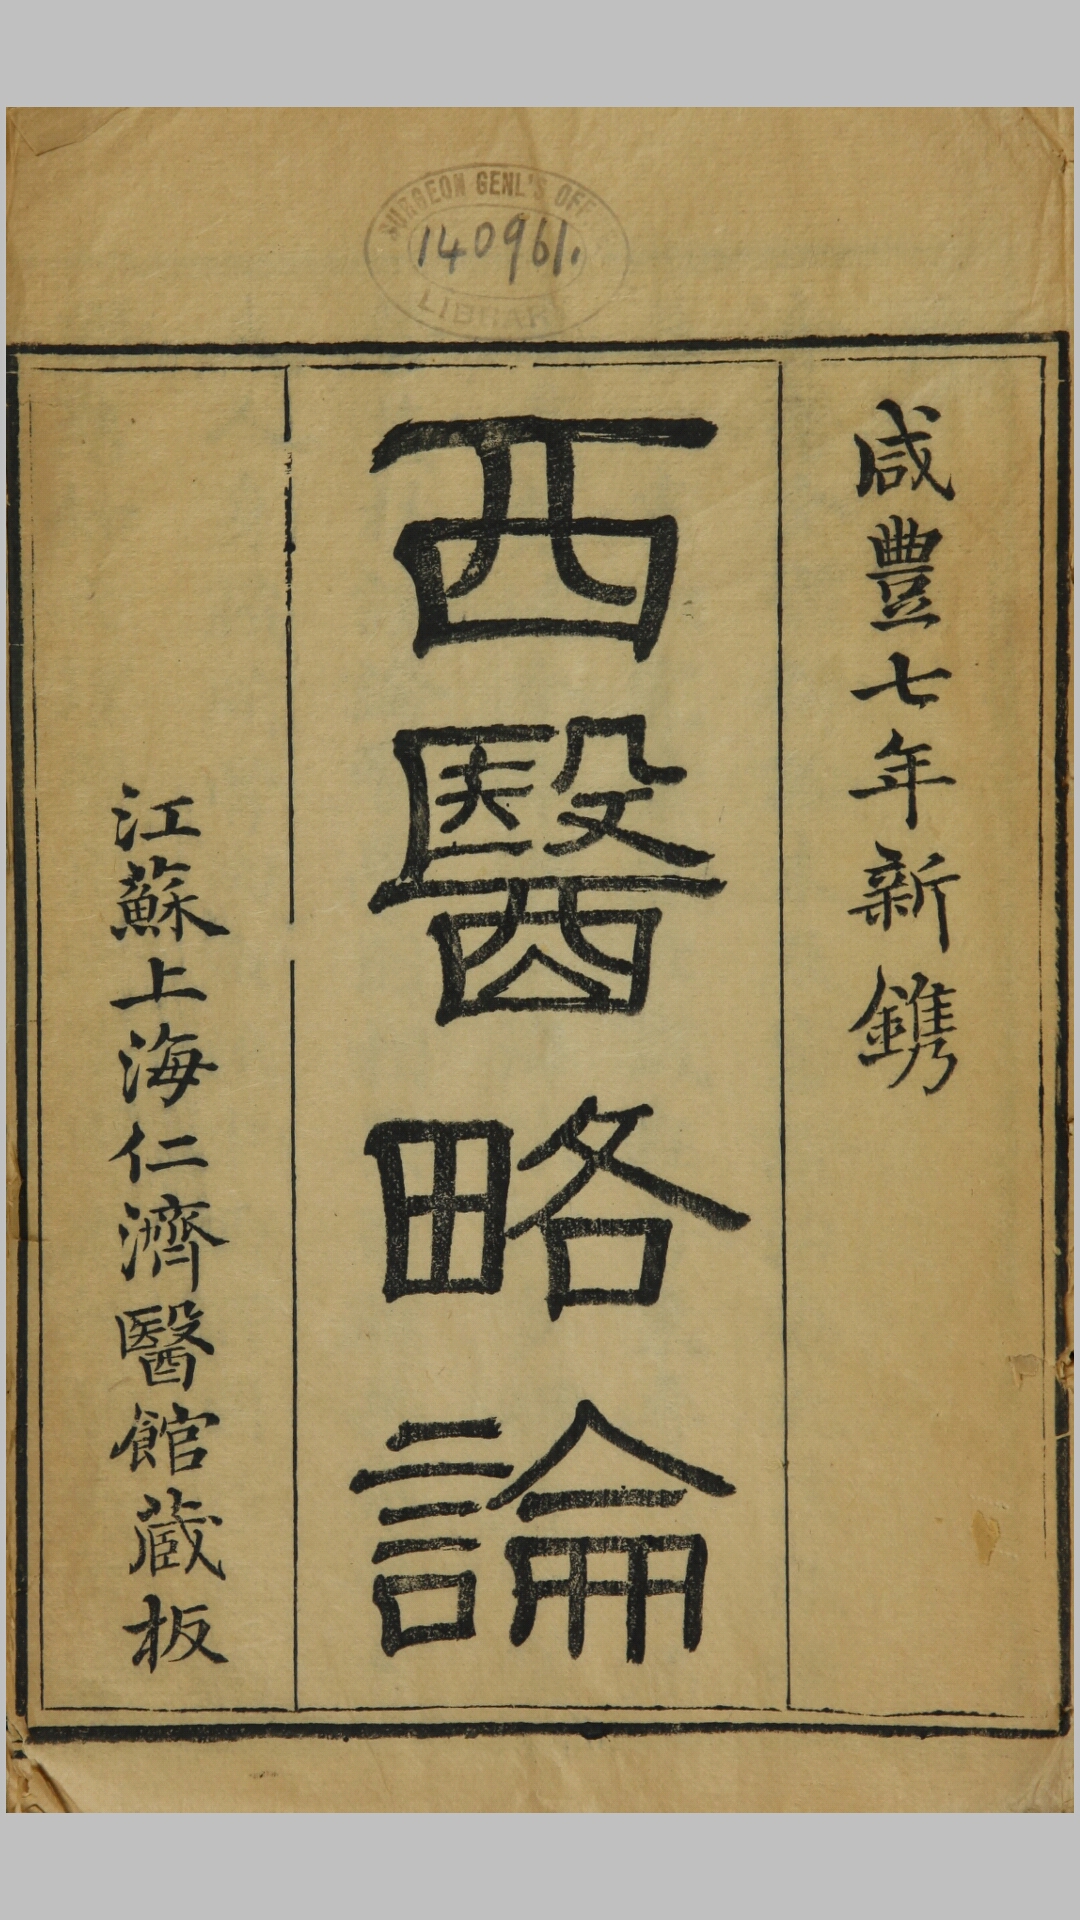 SURGEON GENL'S OFFICE
140961.
LIBRARY
咸豐七年新鐫
西醫略論
江蘇上海仁濟醫館蔵板